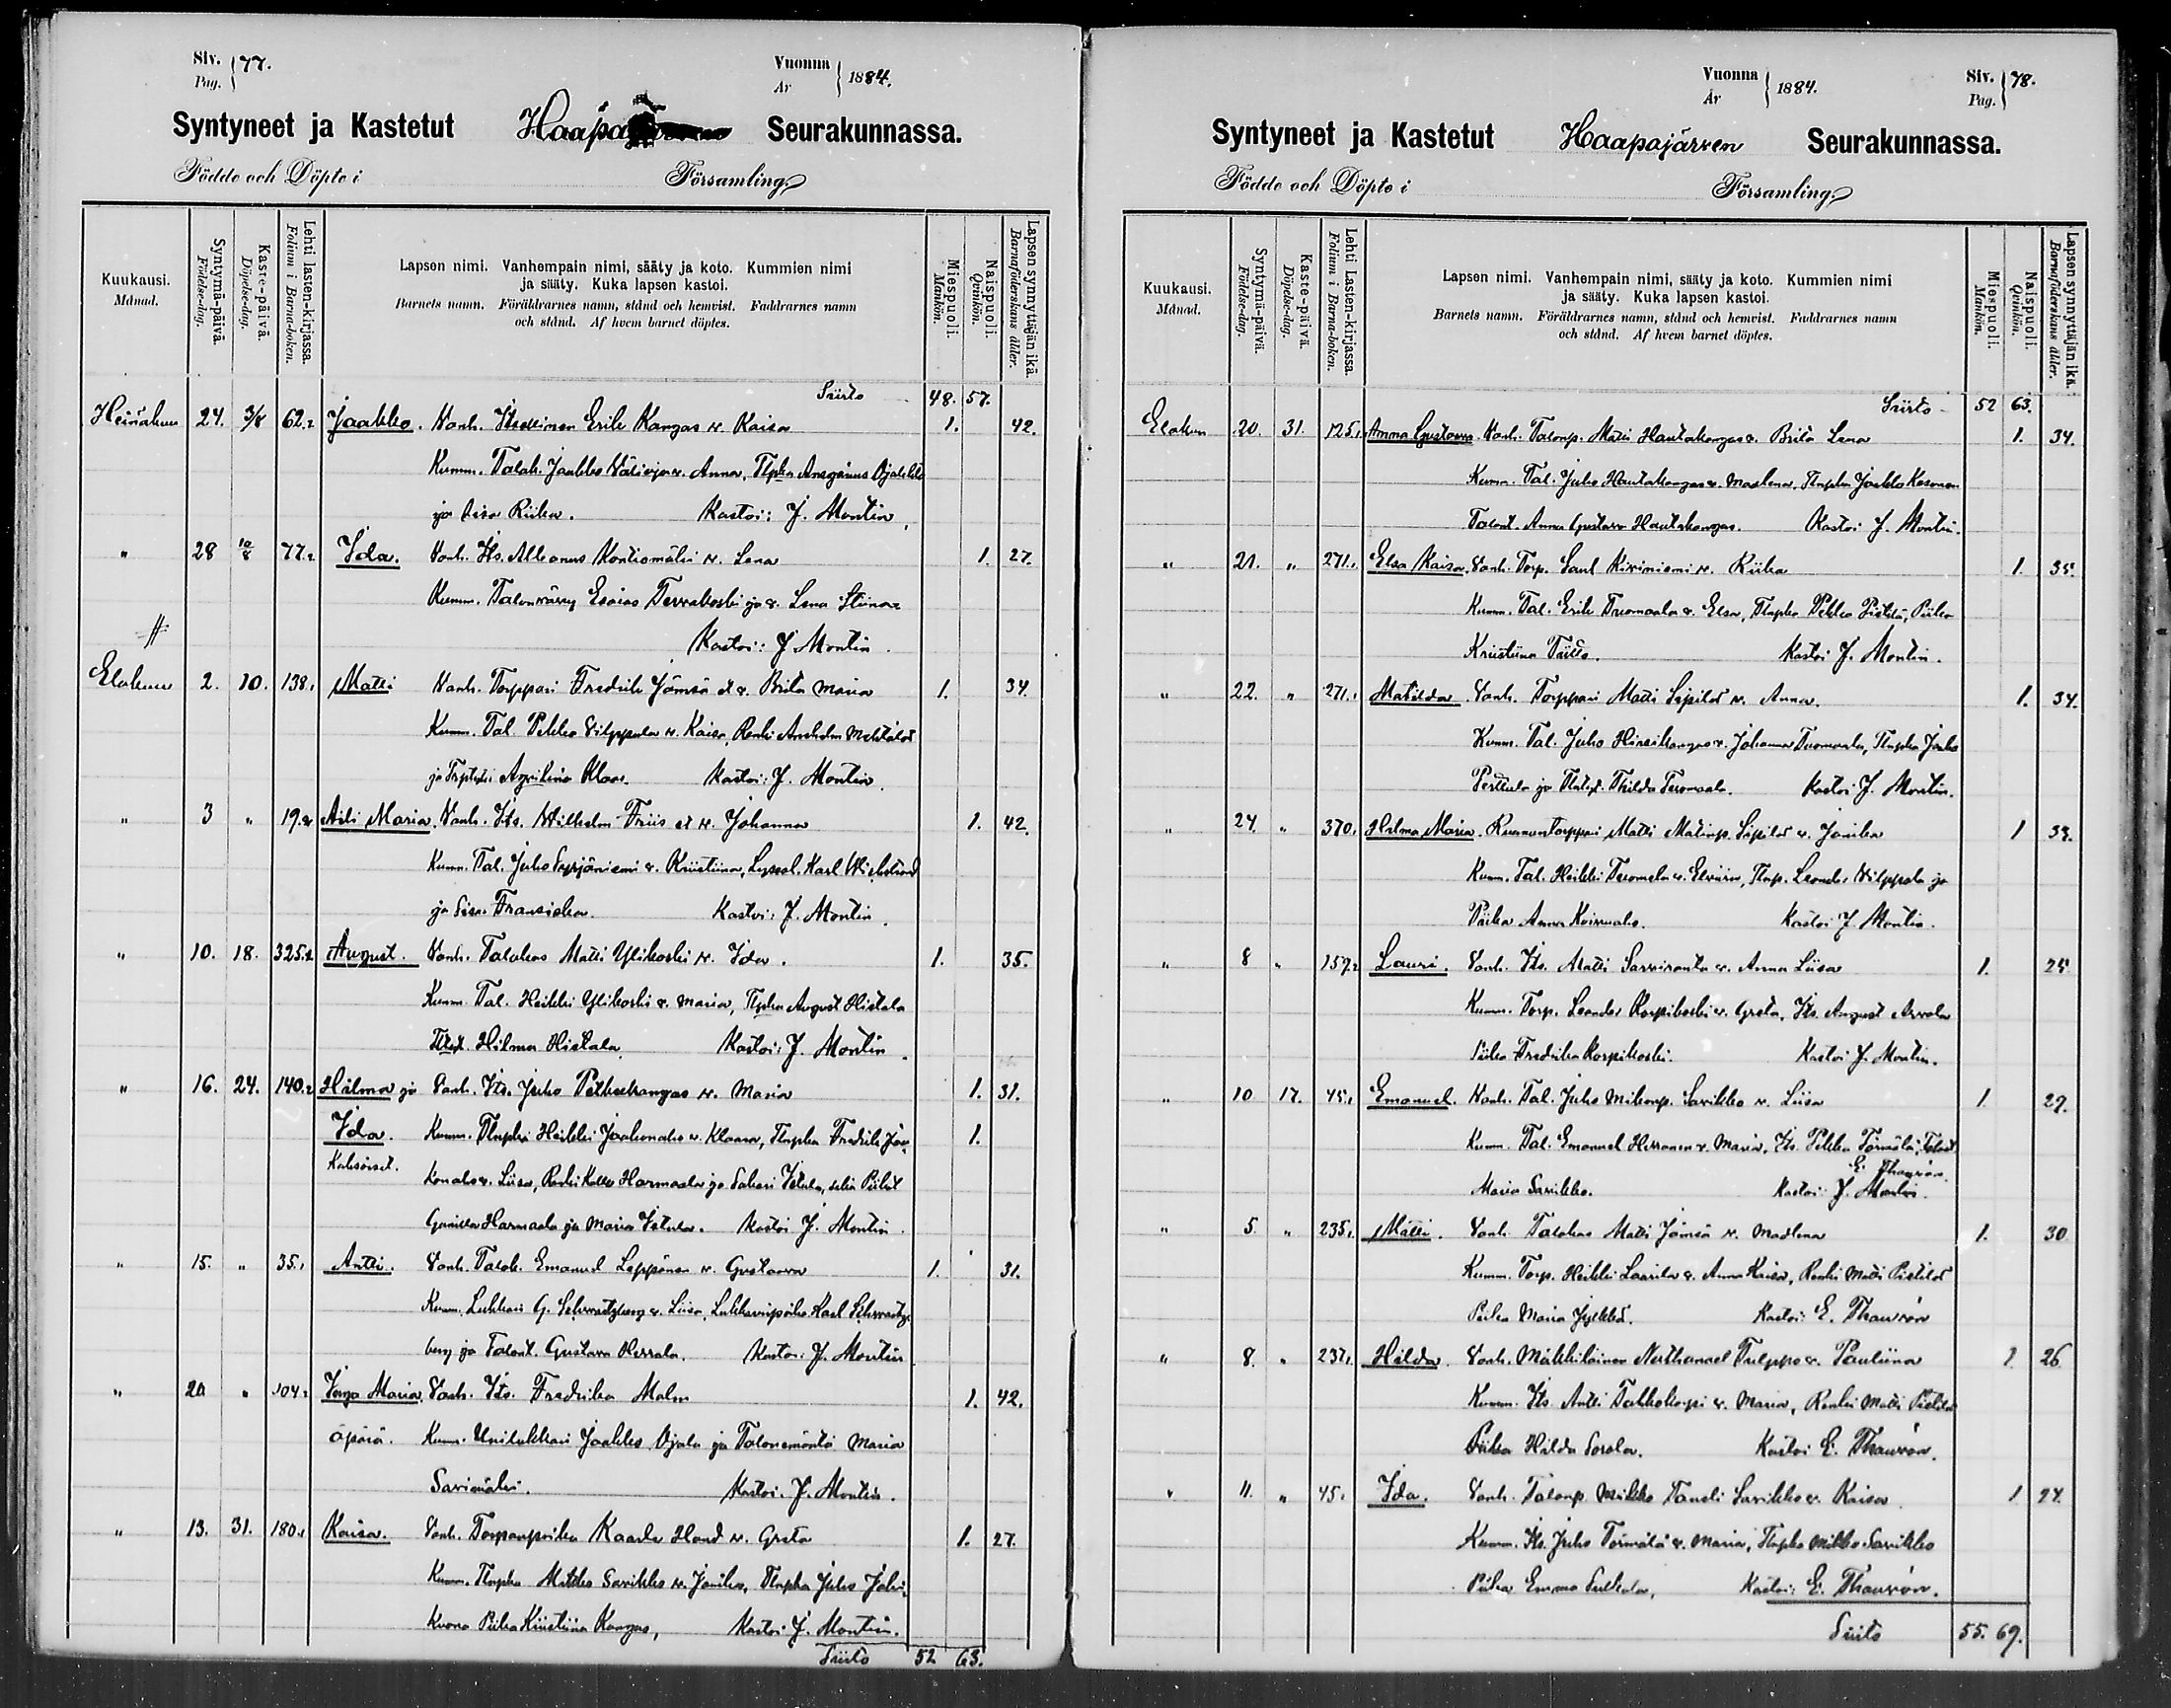 Siv. 77.
Pag.
Vuonna 1884.
År
Syntyneet ja Kastetut Haapa Seurakunnassa.
Födde och Döpte i Församling
Kuukausi.
Månad.
Syntymä-päivä.
Födelse-dag.
Kaste-päivä.
Döpelse-dag.
Lehti lasten-kirjassa.
Folium i Barna-boken.
Lapsen nimi. Vanhempain nimi, sääty ja koto. Kummien nimi
ja sääty. Kuka lapsen kastoi.
Barnets namn. Föräldrarnes namn, stånd och hemvist. Faddrarnes namn
och stånd. Af hvem barnet döptes.
Miespuoli.
Mankön.
Naispuoli.
Qvinkön.
Lapsen synnyttäjän ikä.
Barnaföderskans ålder.
Siirto 48. 57.
Heinäkuu 24. 3/8 62.2 Jaakko. Vanh. Itsellinen Erik Kangas v. Kaisa 1. 42.
Kumm. Talok. Jaakko Välioja v. Anna, Tlpka Ansgarius Ojalehto
ja Riika. Kastoi: J. Montin
" 28 10/8 77.2 Ida. Vanh. Its. Albanus Kontiomäki v. Lena 1. 27.
Kumm. Talonvävy Esaias Tervakoski ja v. Lena Stiina
Kastoi: J. Montin.
Elokuu 2. 10. 138.1 Matti Vanh. Torppari Fredrik Jämsä et v. Brita Maria 1. 34.
Kumm. Tal. Pekko Vilppula v. Kaisa, Renki Anshelm
ja Agrikina Kastoi: J. Montin.
" 3 " 19.2 Aili Maria. Vanh. Its. Wilhelm Friis et v. Johanna 1. 42.
Kumm. Tal. Juho Syrjäniemi v. Kristiina, Karl Wichstrand
ja Fransiska. Kastoi: J. Montin.
" 10. 18. 325.2 August. Vanh. Talokas Matti Ylikoski v. Ida. 1. 35.
Kumm. Tal. Heikki Ylikoski v. Maria, Tlpka August Hietala
Hilma Hietala Kastoi: J. Montin.
" 16. 24. 140.2 Hilma ja Vanh. Its. Juho Petkeskangas v. Maria 1. 31.
Ida. Kumm. Tlnpka Heikki Jaakonaho v. Klaara, Tlnpka Fredrik Jaa- 1.
Kaksoiset. konaho v. Liisa, Renki Kalle Harmaala ja Sakari Istula, sekä Piiat
Gunilla Harmaala ja Maria Istula. Kastoi J. Montin.
" 15. " 35.1 Antti. Vanh. Talok. Emanuel Leppänen v. Gustaava 1. 31.
Kumm. Lukkari G. Schwartzberg v. Liisa, Lukkarinpoika Karl Schwartz-
berg ja Talont. Gustava Herrala. Kastoi: J. Montin
" 20 " 104.2 Maria Vanh. Its. Fredrika Malm 1. 42.
äpärä. Kumm. Unilukkari Jaakko Ojala ja Talonemäntä Maria
Savimäki. Kastoi: J. Montin.
" 13. 31. 180.1 Kaisa. Vanh. Torpanpoika Kaarle Hand v. Greta 1. 27.
Kumm. Tlnpka Mikko Savikko v. Janika, Tlnpka Juho Jaki-
Piika Kristiina Kangas, Kastoi J. Montin.
Siirto 52 63.
Vuonna 1884.
År
Siv. 78.
Pag.
Syntyneet ja Kastetut Haapajärven Seurakunnassa.
Födde och Döpte i Församling
Kuukausi.
Månad.
Syntymä-päivä.
Födelse-dag.
Kaste-päivä.
Döpelse-dag.
Lehti Lasten-kirjassa.
Folium i Barna-boken.
Lapsen nimi. Vanhempain nimi, sääty ja koto. Kummien nimi
ja sääty. Kuka lapsen kastoi.
Barnets namn. Föräldrarnes namn, stånd och hemvist. Faddrarnes namn
och stånd. Af hvem barnet döptes.
Miespuoli.
Mankön.
Naispuoli.
Qvinkön.
Lapsen synnyttäjän ikä.
Barnaföderskans ålder.
Siirto 52 63.
Elokuu 20. 31. 125.1 Anna Gustava. Vanh. Talonp. Matti Hautakangas v. Brita Lena 1. 34.
Kumm. Tal. Juho Hautakangas v. Madlena, Tlnpka Jaakko Kesonen
Talont. Anna Gustava Hautakangas. Kastoi J. Montin.
" 21. " 271.1 Elsa Kaisa. Vanh. Torp. Saul Kiviniemi v. Riika 1. 35.
Kumm. Tal. Erik Tuomaala v. Elsa, Tlnpka Pekka Pietilä, Piika
Kristiina Kastoi J. Montin.
" 22. " 271.1 Matilda. Vanh. Torppari Matti Sipilä v. Anna. 1. 34.
Kumm. Tal. Juho Hirsikangas v. Johanna Tuomaala, Tlnpka Juho
Perttula ja Thilda Tuomaala. Kastoi J. Montin.
" 24. " 370.1 Hilma Maria. Kruununtorppari Matti Matinp. Sipilä v. Janika 1 38.
Kumm. Tal. Heikki Tuomela v. Elviira, Tlnp. Leander Vilppola ja
Piika Anna Koivuaho. Kastoi J. Montin.
" 8 " 157.2 Lauri. Vanh. Its. Matti Saviranta v. Anna Liisa 1. 25
Kumm. Torp. Leander Korpikoski v. Greta, Its. August Arvola
Piika Fredrika Korpikoski. Kastoi J. Montin.
" 10 17. 45.1 Emanuel. Vanh. Tal. Juho Mikonp. Savikko v. Liisa 1 29.
Kumm. Tal. Emanuel Herranen v. Maria, Its. Pekka Törmälä, Talont.
E. Thauvón.
Maria Savikko. Kastoi J. Montin.
" 5. " 235.1 Matti. Vanh. Talokas Matti Jämsä v. Madlena 1. 30
Kumm. Torp. Heikki Laurila v. Anna Kaisa, Renki Matti Pietilä
Piika Maria Jylkkä. Kastoi: E. Thauvón
" 8. " 237.1 Hilda. Vanh. Mäkkiläinen Nathanael Tulppo v. Pauliina 1 26
Kumm. Its. Antti Takkokorpi v. Maria, Renki Matti Pietilä
Piika Hilda Sorola. Kastoi E. Thauvón.
" 11. " 45.1 Ida. Vanh. Talonp. Mikko Taneli Savikko v. Kaisa 1 24.
Kumm. Its. Juho Törmälä v. Maria, Tlnpka Mikko Savikko
Piika Emma Kastoi: E. Thauvón.
Siirto 55. 69.